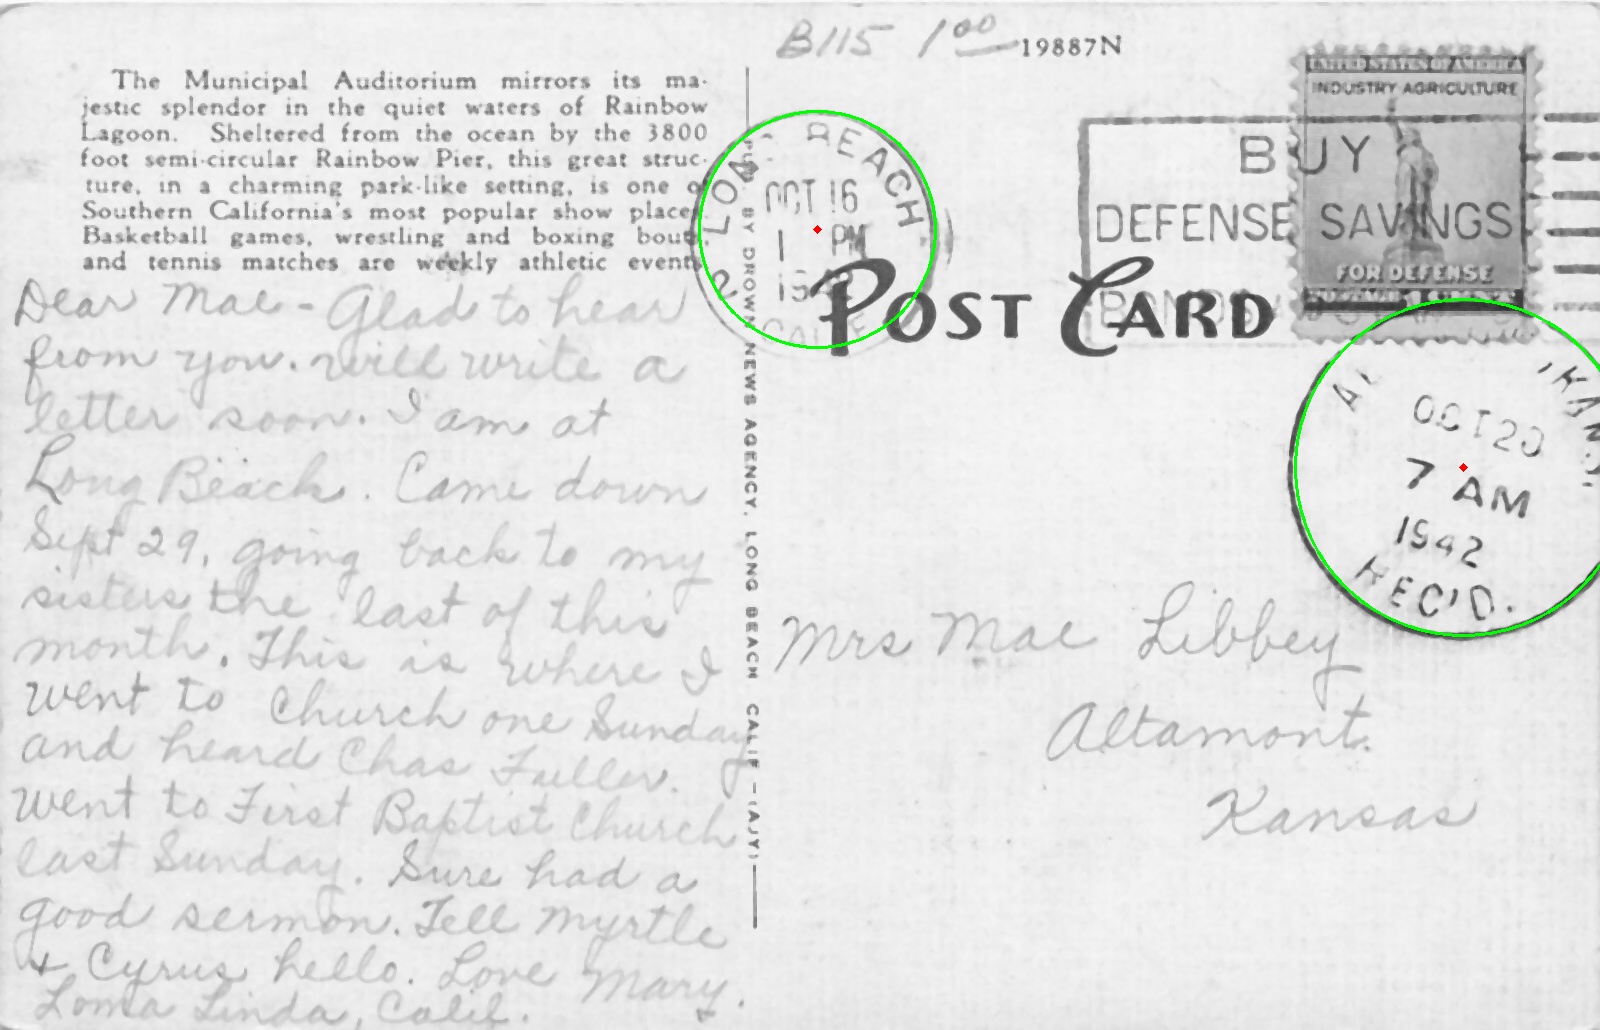 B115 1.00 19887N
The Municipal Auditorium mirrors its ma-
jestic splendor in the quiet waters of Rainbow
Lagoon. Sheltered from the ocean by the 3800
foot semi-circular Rainbow Pier, this great struc-
ture, in a charming park-like setting, is one of
Southern California's most popular show places
Basketball games, wrestling and boxing bouts,
and tennis matches are weekly athletic events
Dear Mae - Glad to hear
from you. Will write a
letter soon. I am at
Long Beach. Came down
Sept 29, going back to my
sisters the last of this
month. This is where I
went to Church one Sunday
and heard Chas Fuller.
Went to First Baptist Church
last Sunday. Sure had a
good sermon. Tell Myrtle
+ Cyrus hello. Love Mary.
Loma Linda, Calif.
BY DROWN NEWS AGENCY, LONG BEACH CALIF - (AJY)
LONG BEACH
OCT 16
1 PM
CALIF
BUY
DEFENSE SAVINGS
UNITED STATES OF AMERICA
INDUSTRY AGRICULTURE
FOR DEFENSE
POST CARD
OCT 20
7 AM
1942
REC'D.
Mrs Mae Libbey
Altamont.
Kansas